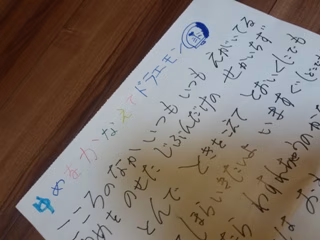 ゆめをかなえてドラエモン
こころのなか いつもいつも えがいてる
ゆめをのせた じぶんだけの せかいちず
とんで ときをこえて とおいくにでも
ほらいきたいよ いますぐ
ら わすれちゃうのか